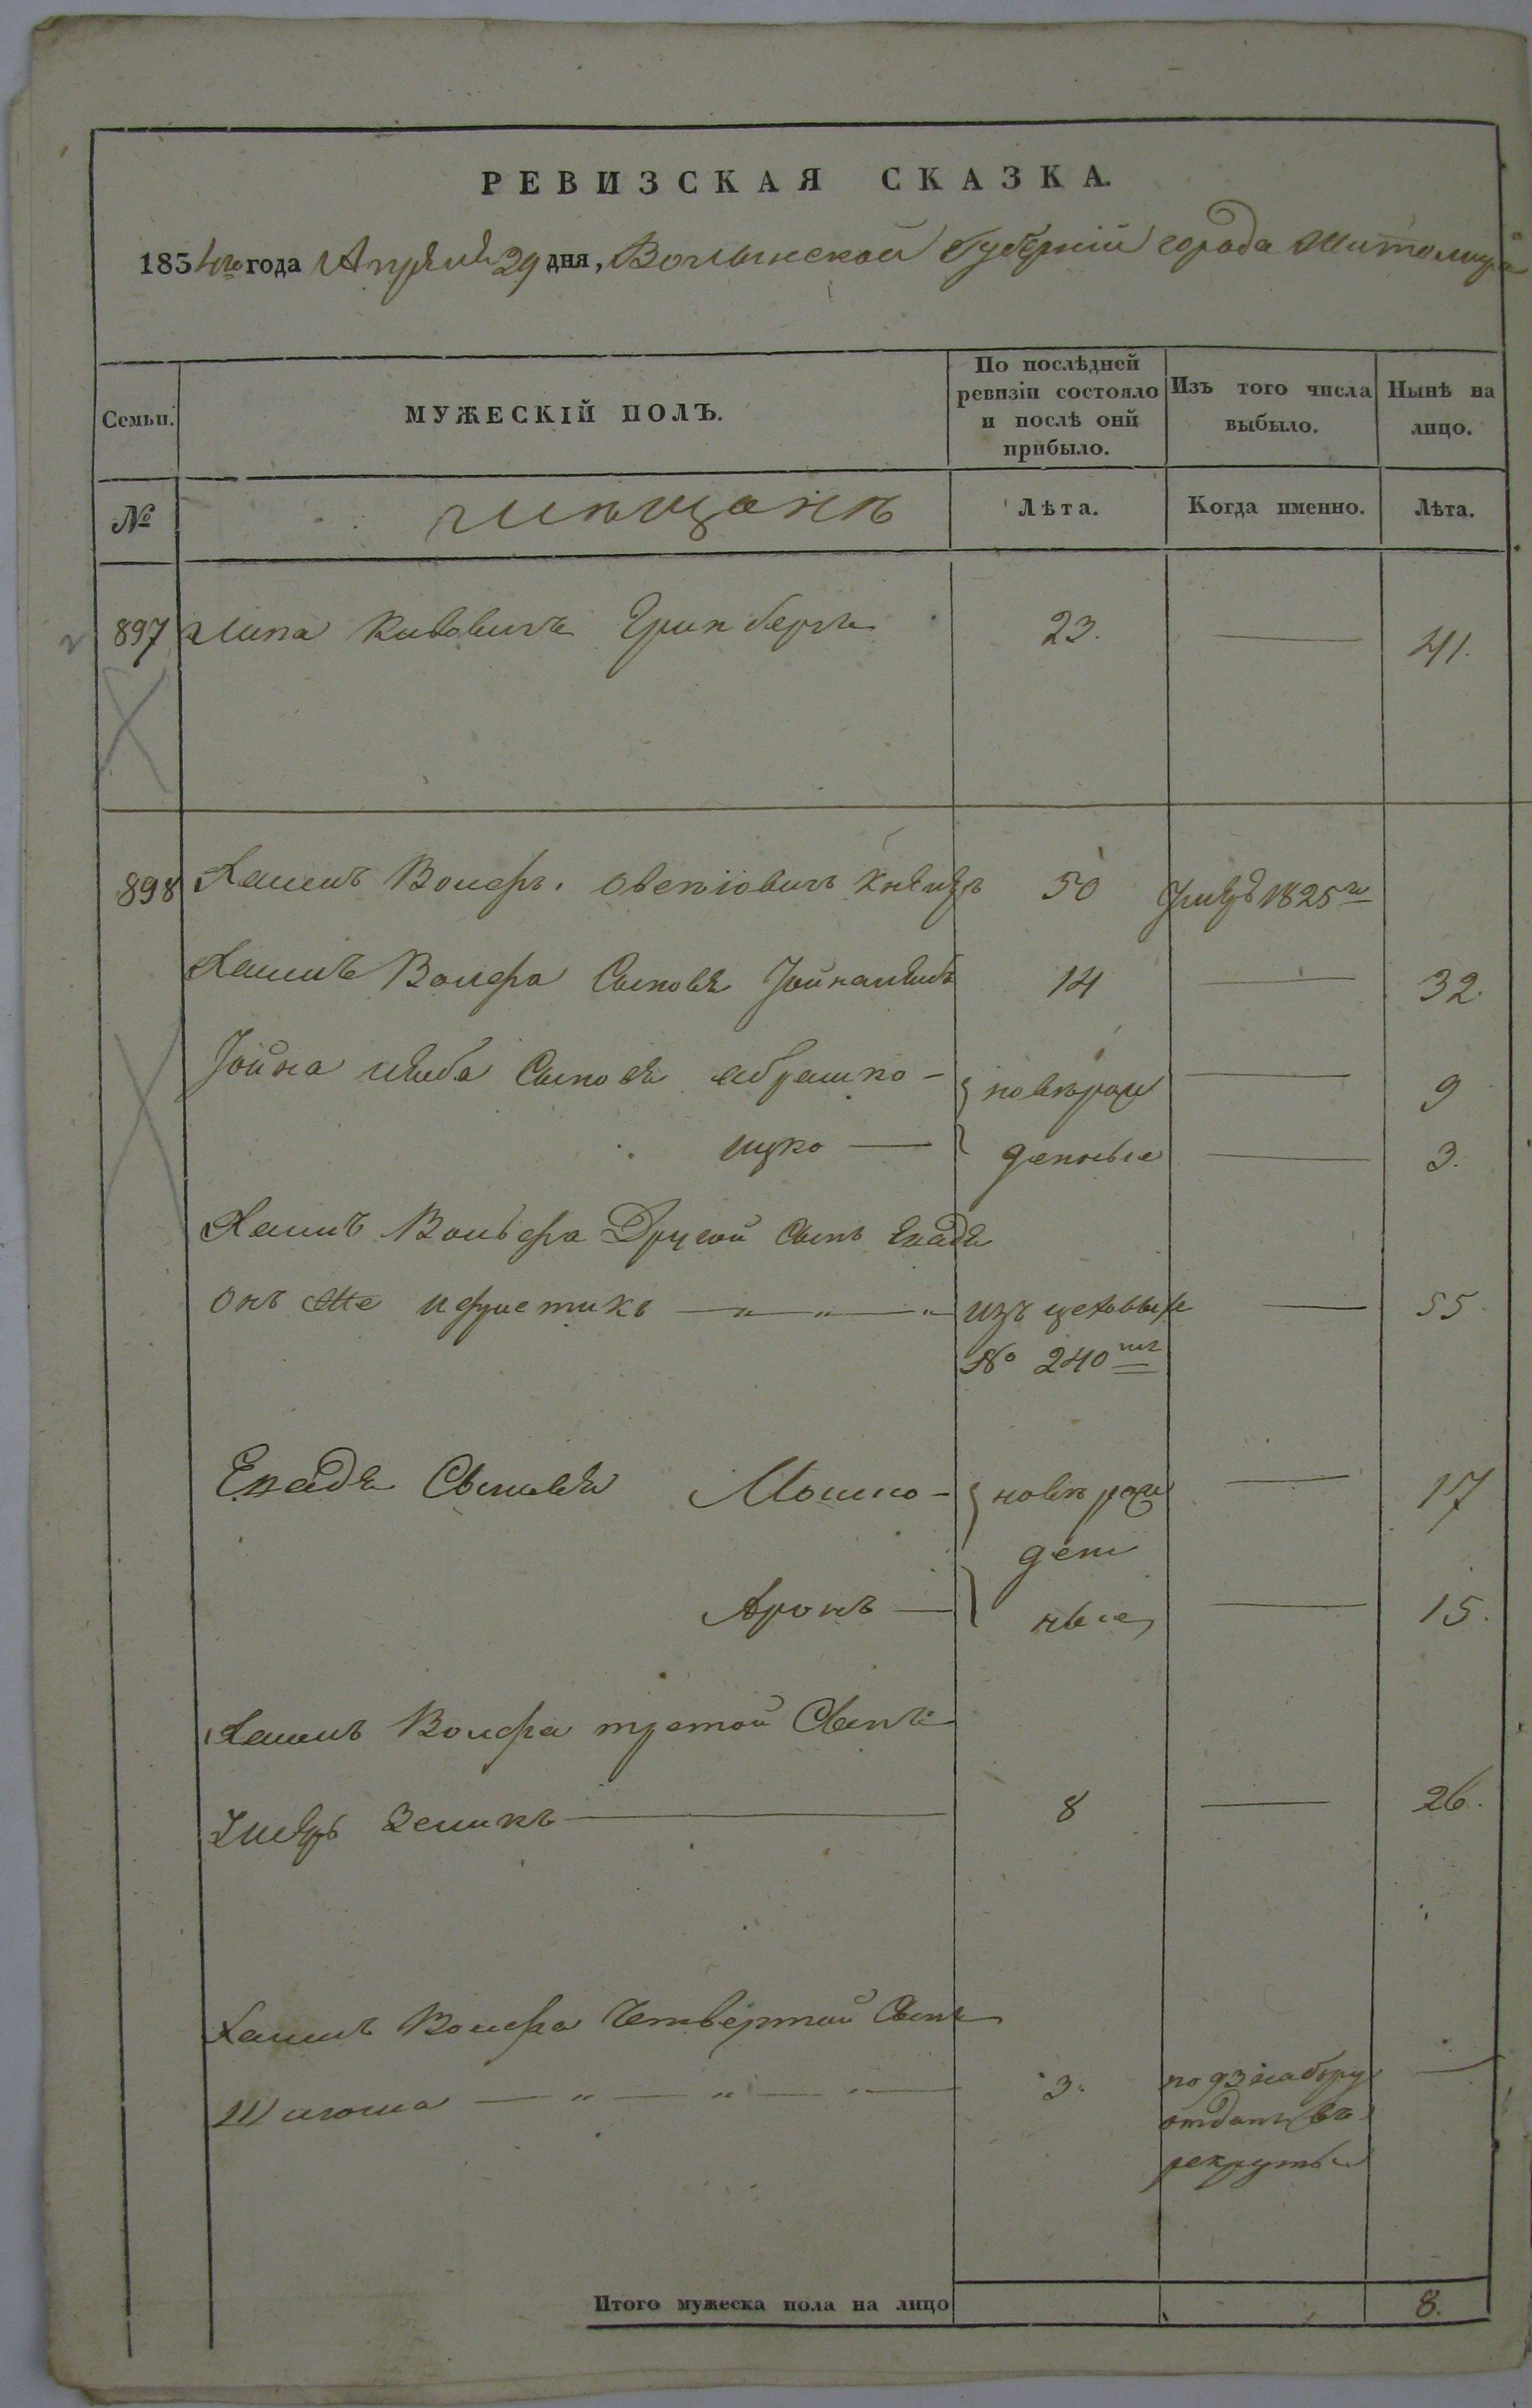 РЕВИЗСКАЯ СКАЗКА.
1854го года Апреля 29 дня, Волынской Губерніи города Житомира
Семьи. МУЖЕСКІЙ ПОЛЪ. По послѣдней ревизіи состояло и послѣ онй прибыло. Изъ того числа выбыло. Нынѣ на лицо.
№ мѣщанъ Лѣта. Когда именно. Лѣта.
897 Липа Кивовичъ Гринбергъ 23. — 41.
898 Хаимъ Волфъ 50 1825го
Хаимъ Волфа Сыновя 14 — 32.
Сыновя Абрашко — новѣрож — 9
Ицко — денные — 3.
Хаимъ Вольфа Другой Сынъ
Онъ же — " — " — " из цеховыхъ — 55
№ 240
Сыновя Мошко — новѣрож — 17
ден
Аронъ — ные — 15.
Хаимъ Волфа третой Сынъ
Зеликъ — 8 — 26.
Хаимъ Волфа Четвертой Сынъ
Шлиома — " — " — " — 3. по 93 набору —
отданъ въ
рекруты
Итого мужеска пола на лицо 8.